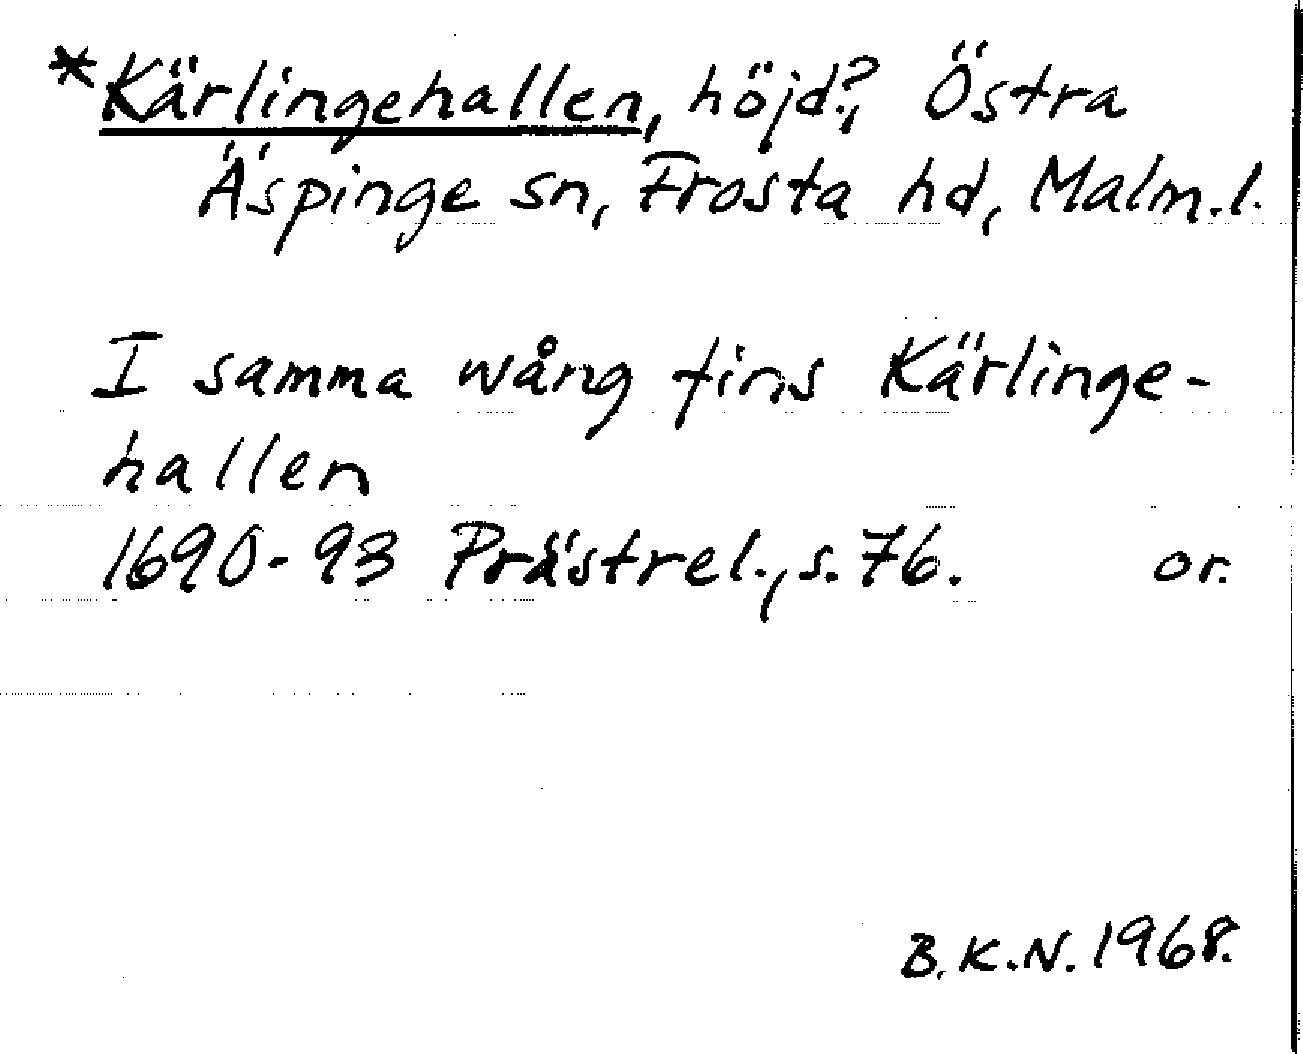 *Kärlingehallen, höjd?, Östra
Äspinge sn, Frosta hd, Malm.l.
I samma wång fins Kärlinge-
hallen
1690-93 Prästrel., s. 76. or.
B.K.N. 1968.